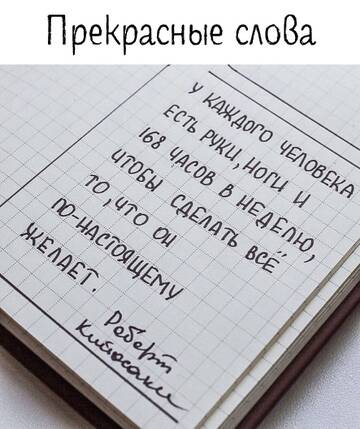 Прекрасные слова
У КАЖДОГО ЧЕЛОВЕКА
ЕСТЬ РУКИ, НОГИ И
168 ЧАСОВ В НЕДЕЛЮ,
ЧТОБЫ СДЕЛАТЬ ВСЁ
ТО, ЧТО ОН
ПО-НАСТОЯЩЕМУ
ЖЕЛАЕТ.
Роберт
Кийосаки